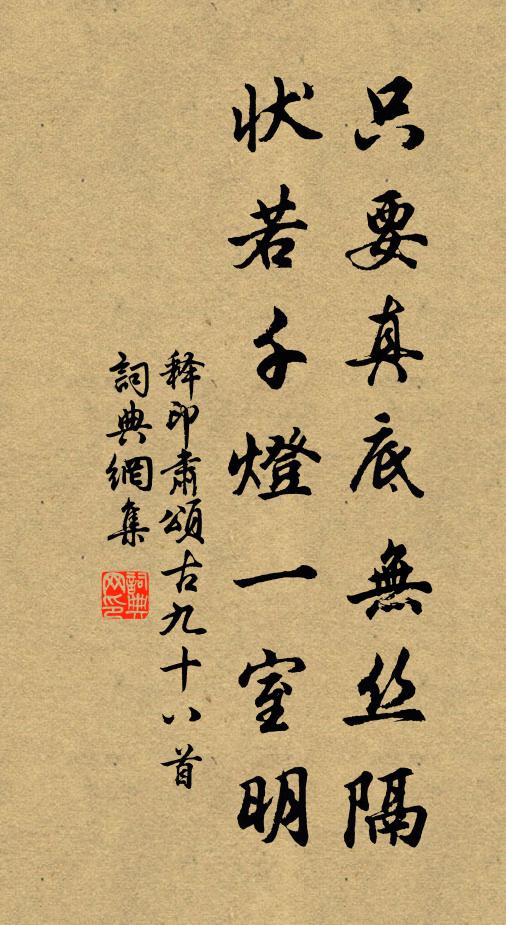 只要真底無丝隔
状若千燈一室明
释印肃頌古九十八首
詞典網集
詞典網印